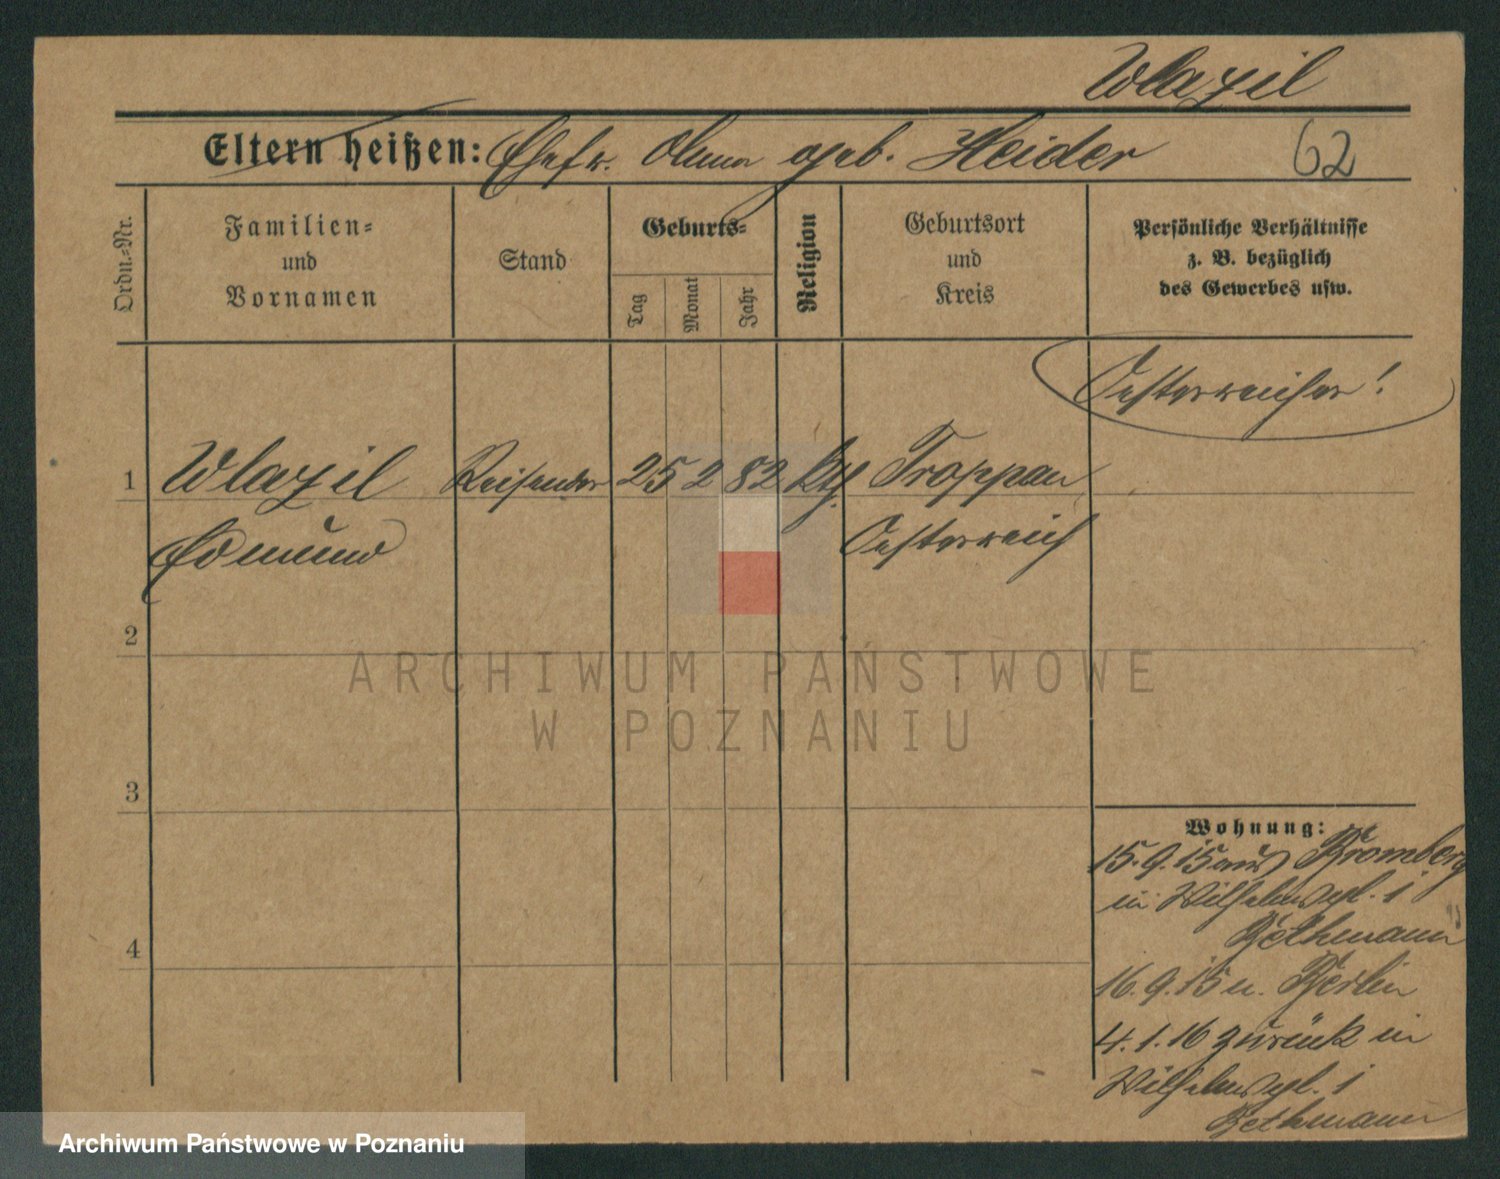 Wlazil
Eltern heißen: Ehefr. Anna geb. Heider 62
Ordn.-Nr.
Familien-
und
Vornamen
Stand
Geburts-
Tag
Monat
Jahr
Religion
Geburtsort
und
Kreis
Persönliche Verhältnisse
z. B. bezüglich
des Gewerbes usw.
Oesterreicher!
1 Wlazil Reisender 25 2 82 kth. Troppau
Edmund Oesterreich
2
3
4
Wohnung:
15.9.15 aus Bromberg
in Wilhelmspl. 1
Bethmann
16.9.15 n. Berlin
4.1.16 zurück in
Wilhelmspl. 1
Bethmann
ARCHIWUM PAŃSTWOWE
W POZNANIU
Archiwum Państwowe w Poznaniu